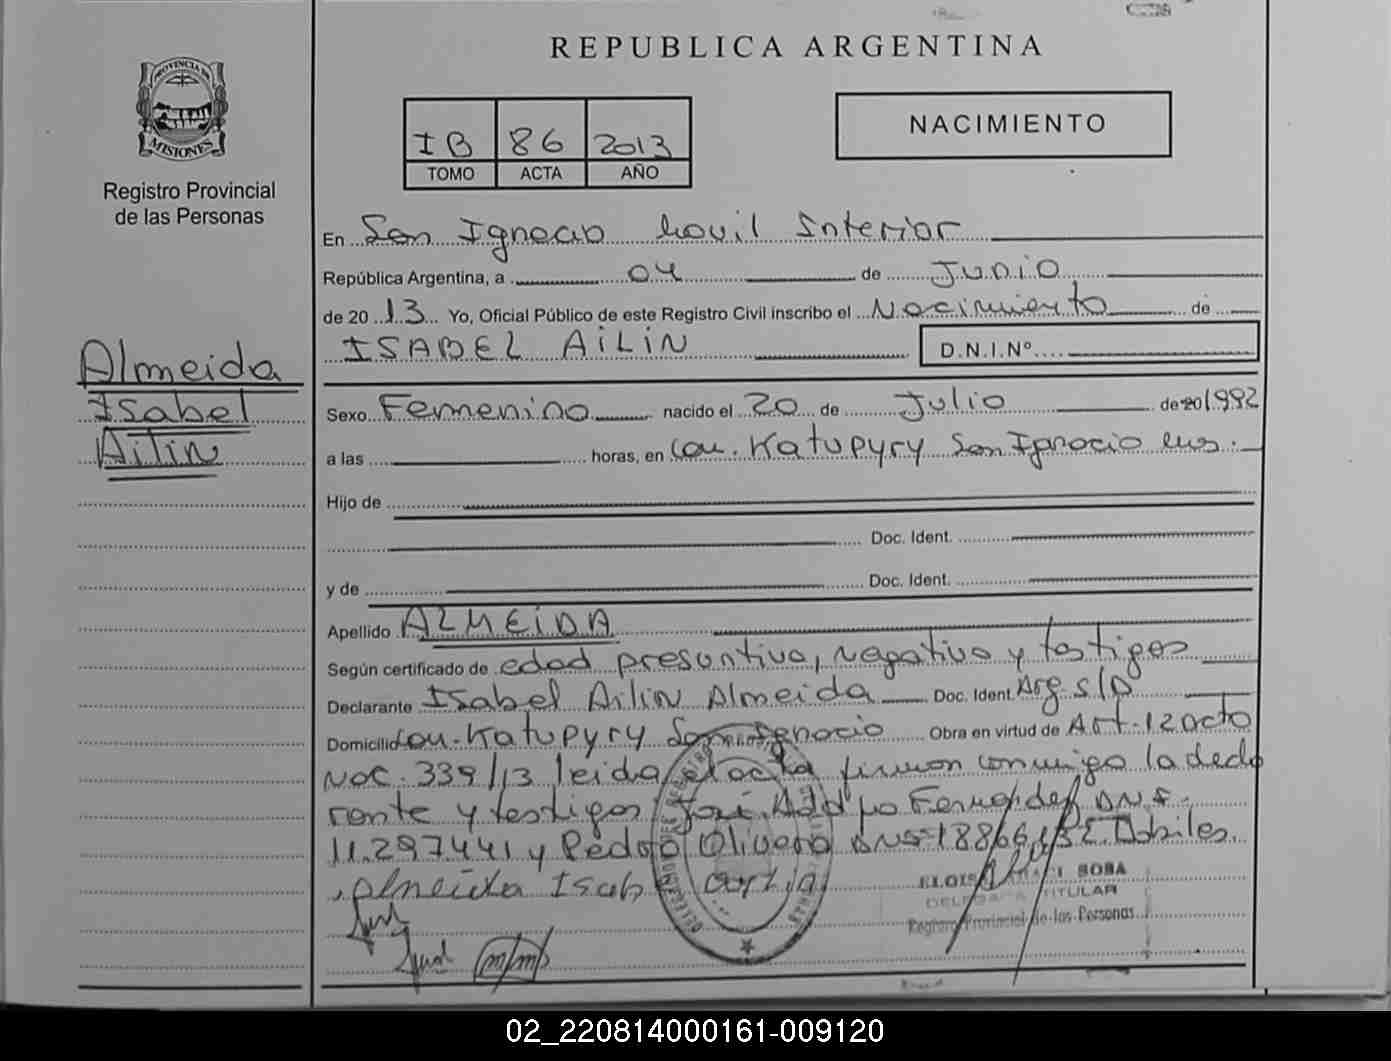 REPUBLICA ARGENTINA
PROVINCIA DE
MISIONES
Registro Provincial
de las Personas
IB 86 2013
TOMO ACTA AÑO
NACIMIENTO
En San Ignacio Movil Interior
República Argentina, a 04 de Junio
de 2013 Yo, Oficial Público de este Registro Civil inscribo el Nacimiento de
ISABEL AiLiN D.N.I.Nº
Almeida
Isabel
Ailin
Sexo Femenino nacido el 20 de Julio de 1992
a las horas, en Com. Katupyry San Ignacio Mns.
Hijo de
Doc. Ident.
y de Doc. Ident.
Apellido ALMEiDA
Según certificado de edad presuntiva, negativa y testigos
Declarante Isabel Ailin Almeida Doc. Ident. Arg S/D
Domicilio Com. Katupyry San Ignacio Obra en virtud de Art. 12 acta
Nac. 339/13 leida el acta firman conmigo la decla
rante y testigos José Fernandez DNI
11.297.441 y Pedro Olivera DNI
Almeida Isab
TITULAR
Registro Provincial de las Personas
02_220814000161-009120